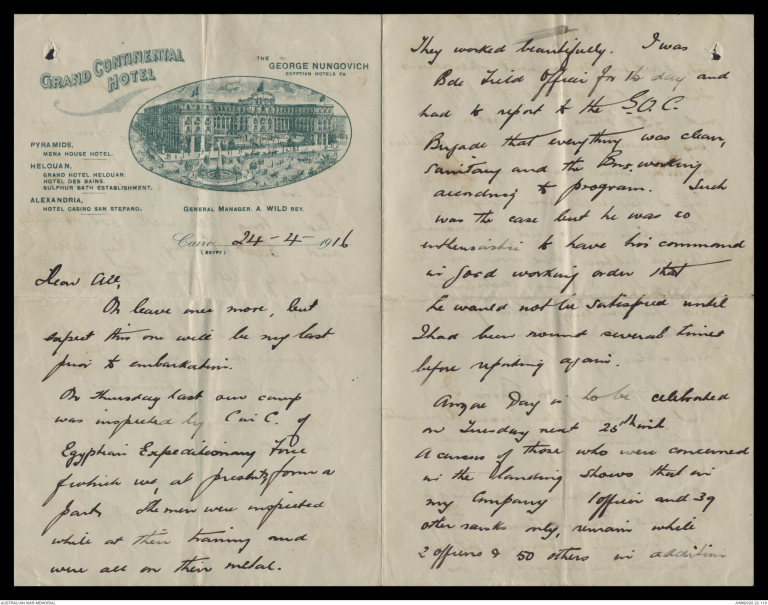 GRAND CONTINENTAL
HOTEL
THE
GEORGE NUNGOVICH
EGYPTIAN HOTELS Co
PYRAMIDS,
MENA HOUSE HOTEL.
HELOUAN,
GRAND HOTEL HELOUAN.
HOTEL DES BAINS.
SULPHUR BATH ESTABLISHMENT.
ALEXANDRIA,
HOTEL CASINO SAN STEFANO.
GENERAL MANAGER. A. WILD BEY.
Cairo, 24-4-1916
(EGYPT)
Dear All,
On leave once more, but
expect this one will be my last
prior to embarkation.
On Thursday last our camp
was inspected by C in C. of
Egyptian Expeditionary Force
of which we, at present, form a
part. The men were inspected
while at their training and
were all on their metal.
They worked beautifully. I was
Bde Field Officer for the day and
had to report to the G.O.C.
Brigade that everything was clean,
sanitary and the Bns. working
according to program. Such
was the case but he was so
enthusiastic to have his command
in good working order that
he would not be satisfied until
I had been round several times
before reporting again.
Anzac Day is to be celebrated
on Tuesday next 25th inst.
A census of those who were concerned
in the landing shows that in
my Company 1 officer and 39
other ranks only, remain while
2 officers & 50 others in addition
AUSTRALIAN WAR MEMORIAL
AWM2020.22.110